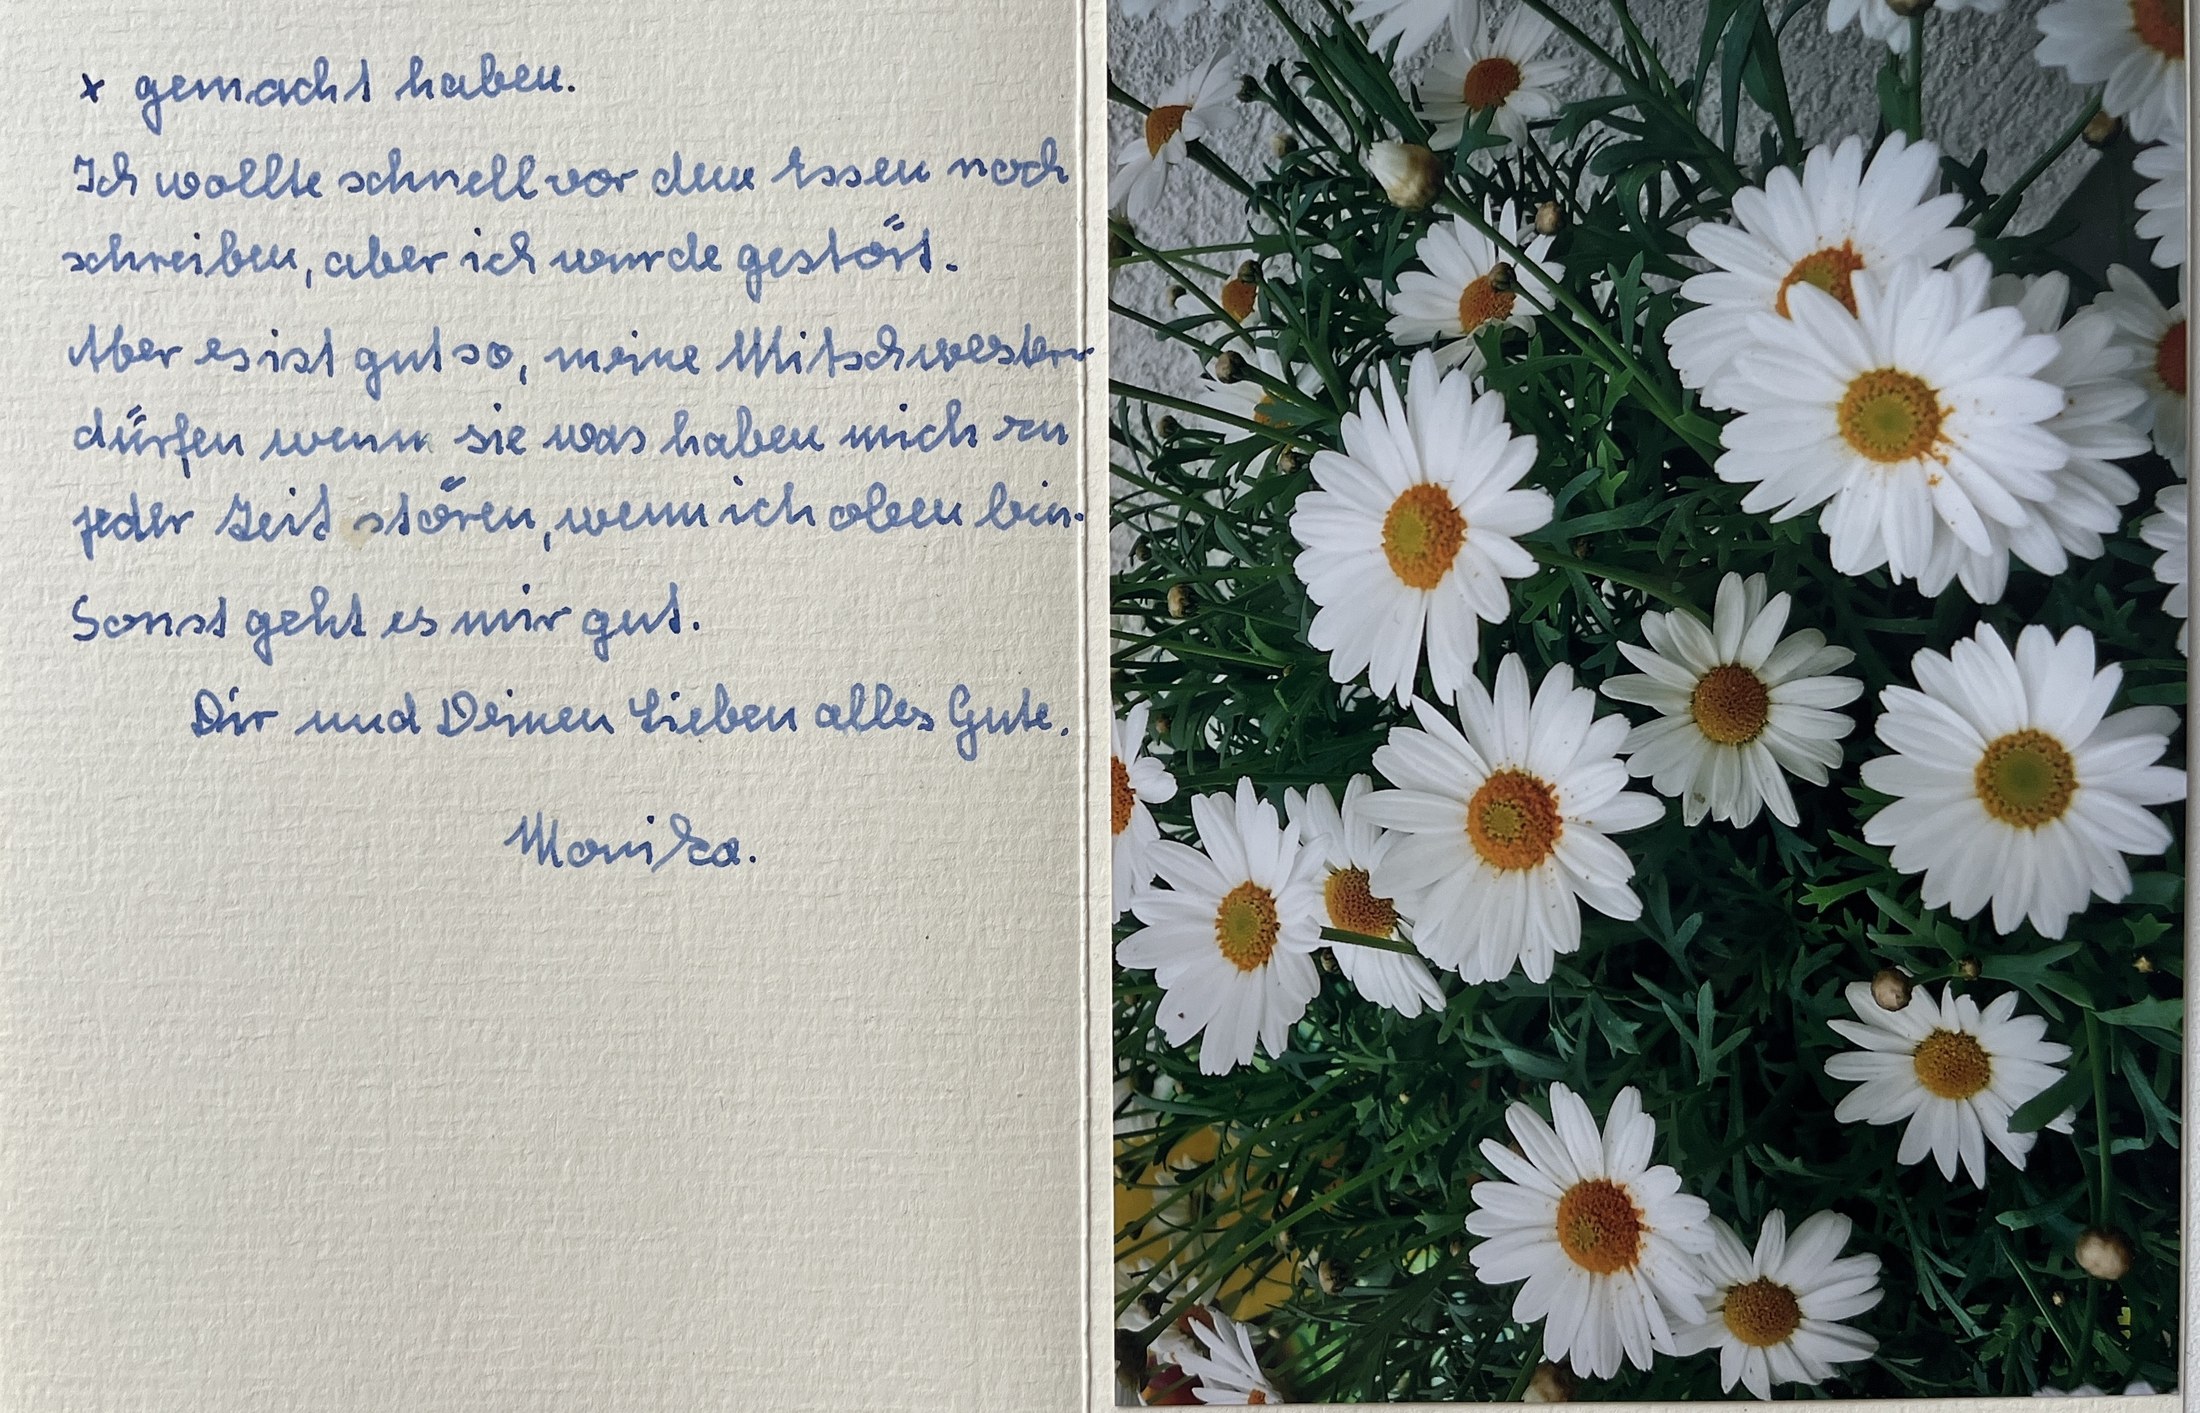 x gemacht haben.
Ich wollte schnell vor dem Essen noch
schreiben, aber ich wurde gestört.
Aber es ist gut so, meine Mitschwestern
dürfen wenn sie was haben mich zu
jeder Zeit stören, wenn ich oben bin.
Sonst geht es mir gut.
Dir und Deinen Lieben alles Gute.
Monika.